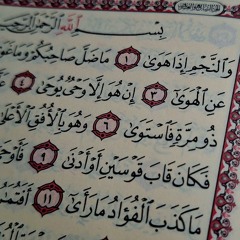 بِسْمِ ٱللَّهِ ٱلرَّحْمَٰنِ ٱلرَّحِيمِ
وَٱلنَّجْمِ إِذَا هَوَىٰ ١ مَا ضَلَّ صَاحِبُكُمْ وَمَا غَوَ
عَنِ ٱلْهَوَىٰٓ ٣ إِنْ هُوَ إِلَّا وَحْىٌ يُوحَىٰ ٤
ذُو مِرَّةٍ فَٱسْتَوَىٰ ٦ وَهُوَ بِٱلْأُفُقِ ٱلْأَعْلَ
فَكَانَ قَابَ قَوْسَيْنِ أَوْ أَدْنَىٰ ٩ فَأَوْحَ
مَا كَذَبَ ٱلْفُؤَادُ مَا رَأَىٰٓ ١١ أَفَتُمَ